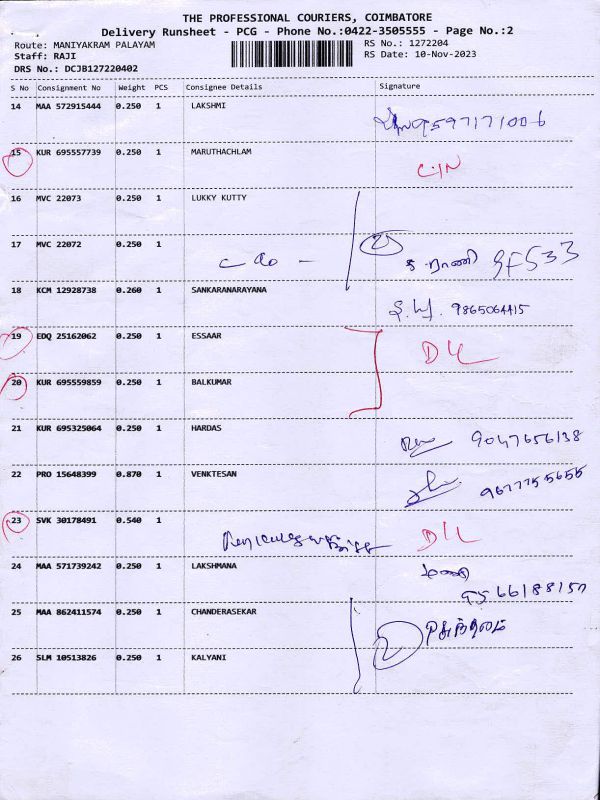 THE PROFESSIONAL COURIERS, COIMBATORE
Delivery Runsheet - PCG - Phone No.:0422-3505555 - Page No.:2
Route: MANIYAKRAM PALAYAM RS No.: 1272204
Staff: RAJI RS Date: 10-Nov-2023
DRS No.: DCJB127220402
S No Consignment No Weight PCS Consignee Details Signature
14 MAA 572915444 0.250 1 LAKSHMI
9597171006
15 KUR 695557739 0.250 1 MARUTHACHLAM
C/N
16 MVC 22073 LUKKY KUTTY
17 MVC 22072 0.250 1
2
ராணி GF533
18 KCM 12928738 0.260 1 SANKARANARAYANA
9865064415
19 EDQ 25162062 0.250 1 ESSAAR
D/L
20 KUR 695559859 0.250 1 BALKUMAR
21 KUR 695325064 0.250 1 HARDAS
9047656138
22 PRO 15648399 0.870 1 VENKTESAN
9677755655
23 SVK 30178491 0.540 1
D/L
24 MAA 571739242 0.250 1 LAKSHMANA
66188157
25 MAA 862411574 0.250 1 CHANDERASEKAR
2
26 SLM 10513826 0.250 1 KALYANI